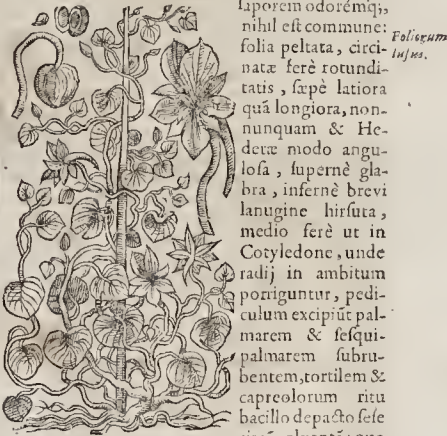 saporem odorémq;,
nihil est commune:
folia peltata, circi-
natæ ferè rotundi-
tatis, sæpè latiora
quã longiora, non-
nunquam & He-
deræ modo angu-
losa, supernè gla-
bra, infernè brevi
lanugine hirsuta,
medio ferè ut in
Cotyledone, unde
radij in ambitum
porriguntur, pedi-
culum excipiũt pal-
marem & sesqui-
palmarem subru-
bentem, tortilem &
capreolorum ritu
bacillo depacto sese
Foliorum
lusus.